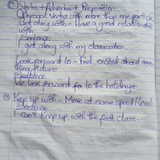 Verb + Adverb + Preposition
Phrasal Verbs with more than one particle
Get along with - Have a good relationship
with
Sentence
I get along with my classmates
Look forward to - Feel excited about some
thing future
Sentence
We look forward for to the holidays.
Keep up with - Move at same speed/level
Sentence
I can't keep up with the fast class.